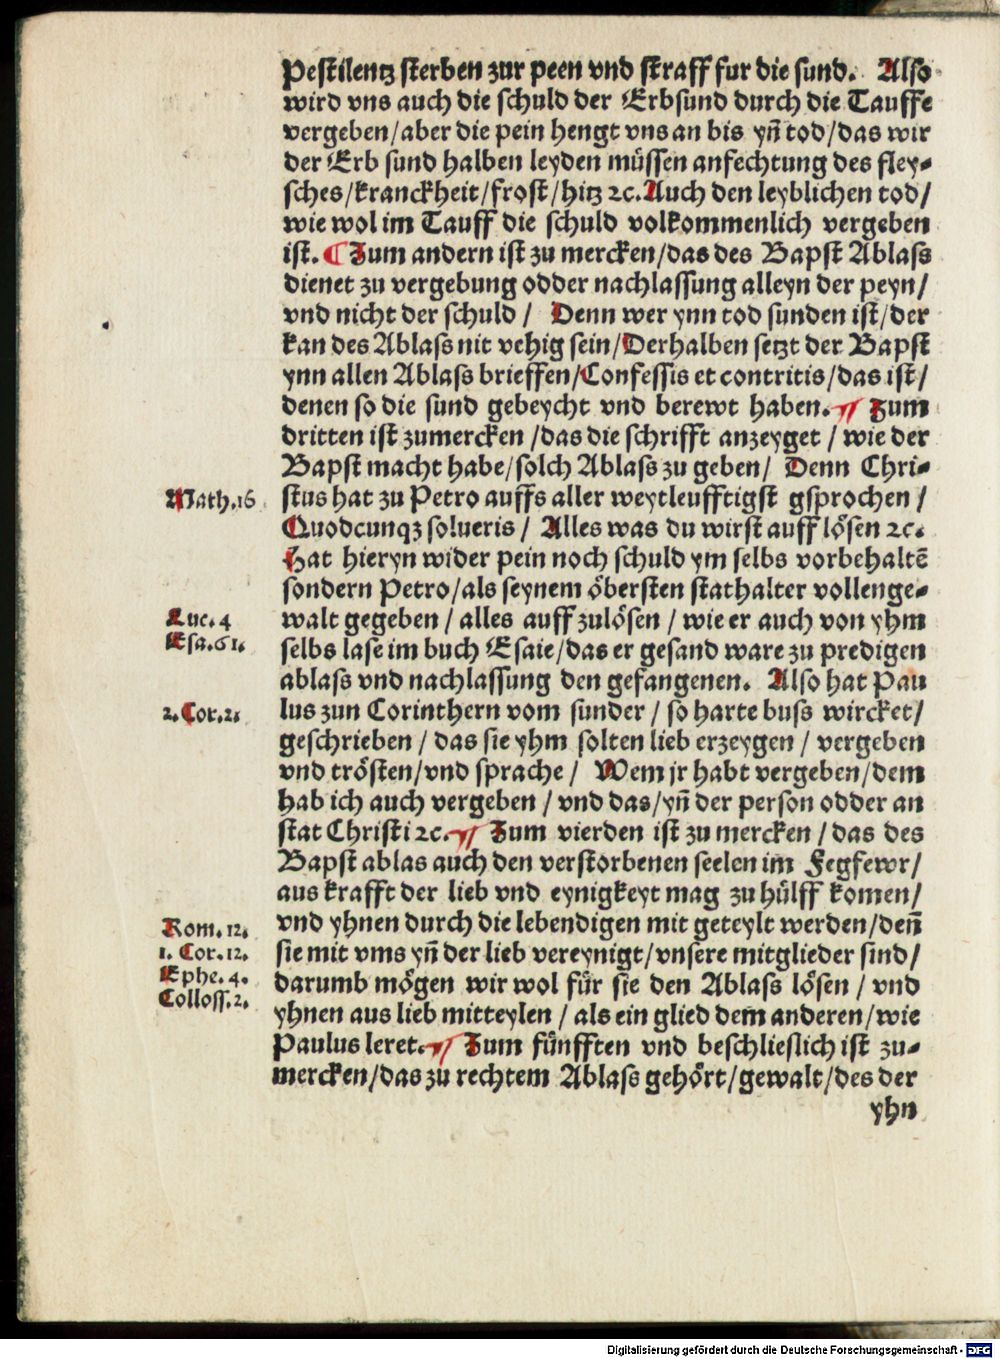 Pestilentz sterben zur peen vnd straff fur die sund. Also
wird vns auch die schuld der Erbsund durch die Tauffe
vergeben/aber die pein hengt vns an bis yñ tod/das wir
der Erb sund halben leyden müssen anfechtung des fley⸗
sches/kranckheit/frost/hitz ꝛc. Auch den leyblichen tod/
wie wol im Tauff die schuld volkommenlich vergeben
ist. ¶ Zum andern ist zu mercken/das des Bapst Ablass
dienet zu vergebung odder nachlassung alleyn der peyn/
vnd nicht der schuld / Denn wer ynn tod sunden ist/der
kan des Ablass nit vehig sein/Derhalben setzt der Bapst
ynn allen Ablass brieffen/Confessis et contritis/das ist/
denen so die sund gebeycht vnd berewt haben. ¶ Zum
dritten ist zumercken /das die schrifft anzeyget / wie der
Bapst macht habe/solch Ablass zu geben/ Denn Chri⸗
Math.16 stus hat zu Petro auffs aller weytleufftigst gsprochen /
Quodcunqꝫ solueris / Alles was du wirst auff lösen ꝛc.
Hat hieryn wider pein noch schuld ym selbs vorbehaltē
sondern Petro/als seynem öbersten stathalter vollenge⸗
Luc. 4 walt gegeben / alles auff zulösen / wie er auch von yhm
Esa.61. selbs lase im buch Esaie/das er gesand ware zu predigen
ablass vnd nachlassung den gefangenen. Also hat Pau
2.Cor.2. lus zun Corinthern vom sunder / so harte buss wircket/
geschrieben / das sie yhm solten lieb erzeygen / vergeben
vnd trösten/vnd sprache / Wem jr habt vergeben/dem
hab ich auch vergeben / vnd das/yñ der person odder an
stat Christi ꝛc. ¶ Zum vierden ist zu mercken / das des
Bapst ablas auch den verstorbenen seelen im Fegfewr/
aus krafft der lieb vnd eynigkeyt mag zu hülff komen/
Rom.12. vnd yhnen durch die lebendigen mit geteylt werden/deñ
1. Cor.12. sie mit vms yñ der lieb vereynigt/vnsere mitglieder sind/
Ephe. 4. darumb mögen wir wol für sie den Ablass lösen / vnd
Coloss.2. yhnen aus lieb mitteylen / als ein glied dem anderen/wie
Paulus leret. ¶ Zum fünfften vnd beschlieslich ist zu⸗
mercken/das zu rechtem Ablass gehört/gewalt/des der
yhn
Digitalisierung gefördert durch die Deutsche Forschungsgemeinschaft - DFG